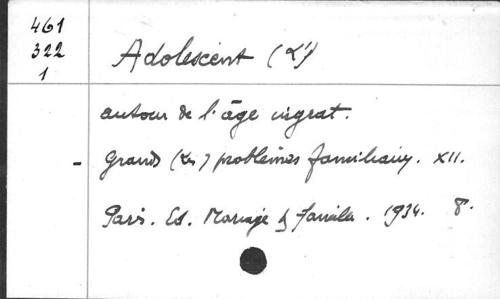 461
322
1
Adolescent (L')
autour de l'âge ingrat.
- Grands (Les) problèmes familiaux. XII.
Paris. Ed. Mariage & famille. 1934. 8°.